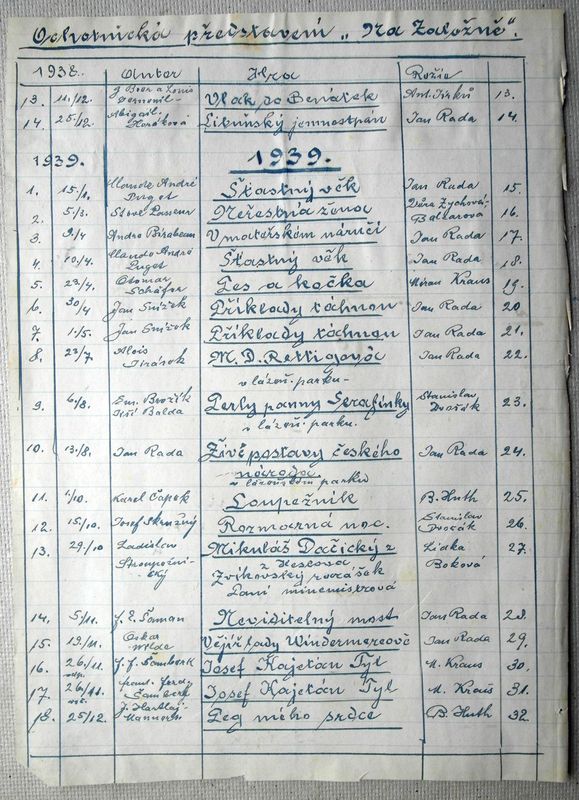 Ochotnická představení „Na Založně".
1938. Autor Hra Režie
13. 11./12. J. Beer a Louis Verneuil- Vlak do Benátek Ant. Jirků 13.
14. 25/12. Abigail- Horáková Libuňský jemnostpán Jan Rada 14.
1939. 1939.
1. 15./1. Claude André Puget Šťastný věk Jan Rada 15.
2. 5/3. Neřestná žena Věra Zychová- Baltarová 16.
3. 9/4 Andre Birabeau V mateřském náručí Jan Rada 17.
4. 10./4. Claude André Puget Šťastný věk Jan Rada 18.
5. 23/4. Otomar Schäfer Pes a kočka Miran Kraus 19.
6. 30/4 Jan Snížek Příklady táhnou Jan Rada 20
7. 1./5. Jan Snížek Příklady táhnou Jan Rada 21.
8. 23/7 Alois Jirásek M. D. Rettigová Jan Rada 22.
v lázeň. parku-
9. 6./8. Em. Brožík Jiří Balda Perly panny Serafinky Stanislav Dvořák 23.
v lázeň. parku.
10. 13./8. Jan Rada Živé postavy českého Jan Rada 24.
národa
v lázeňském parku
11. 1/10. Karel Čapek Loupežník B. Huth 25.
12. 15/10. Josef Skružný Rozmarná noc. Stanislav Dvořák 26.
13. 29./10 Ladislav Stroupežnický Mikuláš Dačický z Lidka Boková 27.
z Heslova
Zvíkovský rarášek
Paní mincmistrová
14. 5/11. J. E. Šaman Neviditelný most Jan Rada 28.
15. 19/11. Oskar Wilde Vějíř lady Windermereové Jan Rada 29.
16. 26/11. odp. J. F. Šamberk Josef Kajetán Tyl M. Kraus 30.
17. 26/11. več. Ferdy Šamberk Josef Kajetán Tyl M. Kraus 31.
18. 25/12. J. Hartley- Manners Peg mého srdce B. Huth 32